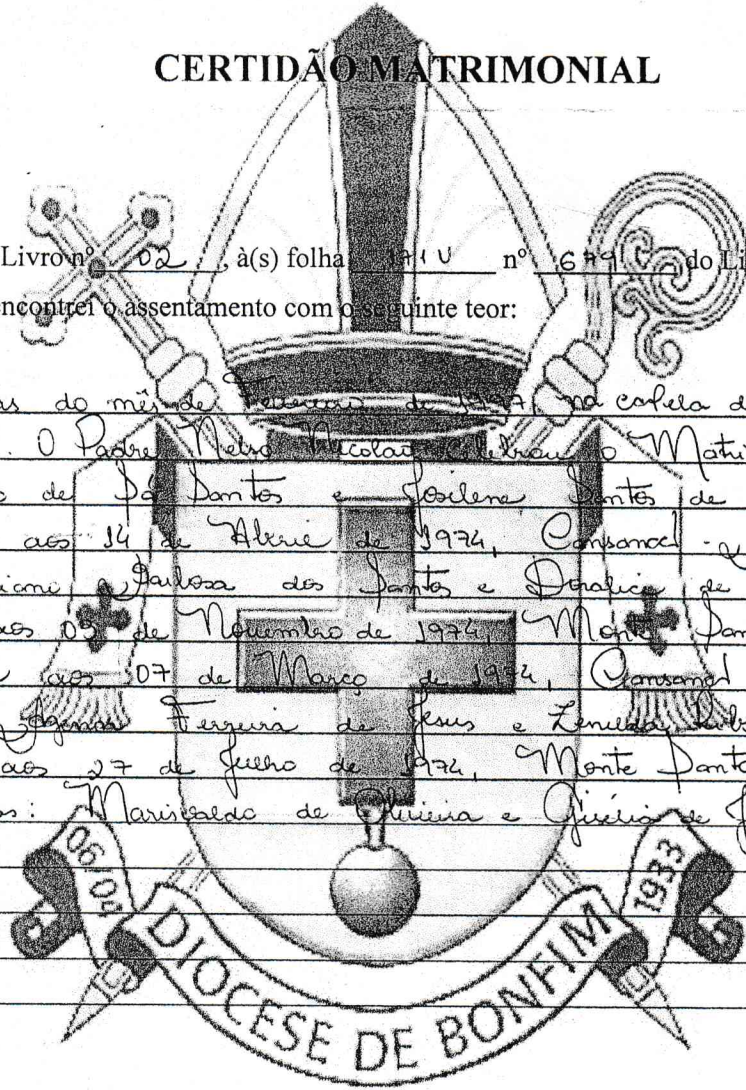 CERTIDÃO MATRIMONIAL
Livro nº 02, à(s) folha 171 V nº 679 V do Li
encontrei o assentamento com o seguinte teor:
as do mês de Fevereiro de 1997, na capela d
. O Padre Nelso Nicolau celebrou o Matri
o de Sá Santos e Josilene Santos de
aos 14 de Abril de 1974, Cansanção
Barbosa dos Santos e Doralice de
aos 03 de Novembro de 1974, Monte San
aos 07 de Março de 1974, Cansanção
Agenor Ferreira de Jesus e Zenilda
aos 27 de Julho de 1974, Monte Santo
os: Marisvaldo de Oliveira e Gisélia de J
06/04
1933
DIOCESE DE BONFIM